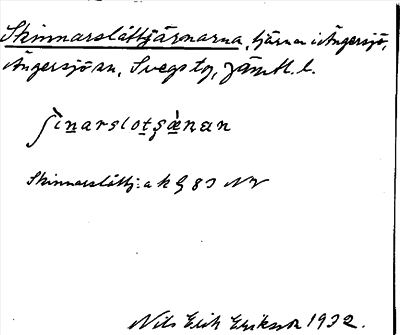 Skinnarslåttjärnarna, tjärnar i Ängersjö,
Ängersjö sn, Svegs tg, Jämtl. l.
ʃìnarslotʂæ̀nan
Skinnarslåttj:a k G 83 NV
Nils Erik Eriksson 1932.